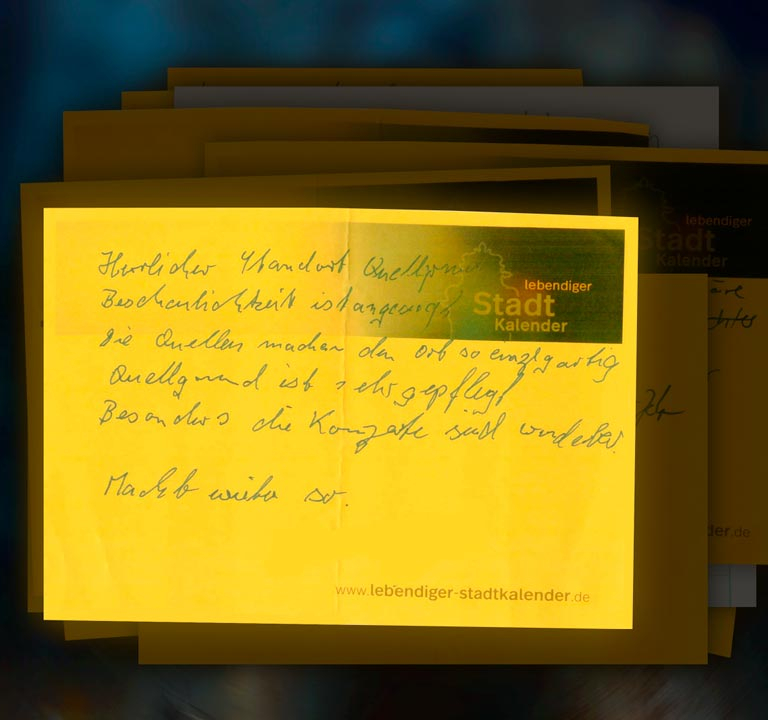 Herrlicher Standort Quellgrund
Beschaulichkeit ist angesagt
Die Quellen machen den Ort so einzigartig
Quellgrund ist sehr gepflegt
Besonders die Konzerte sind wunderbar.
Macht weiter so.
lebendiger
Stadt
Kalender
www.lebendiger-stadtkalender.de
lebendiger
Stadt
Kalender
der.de